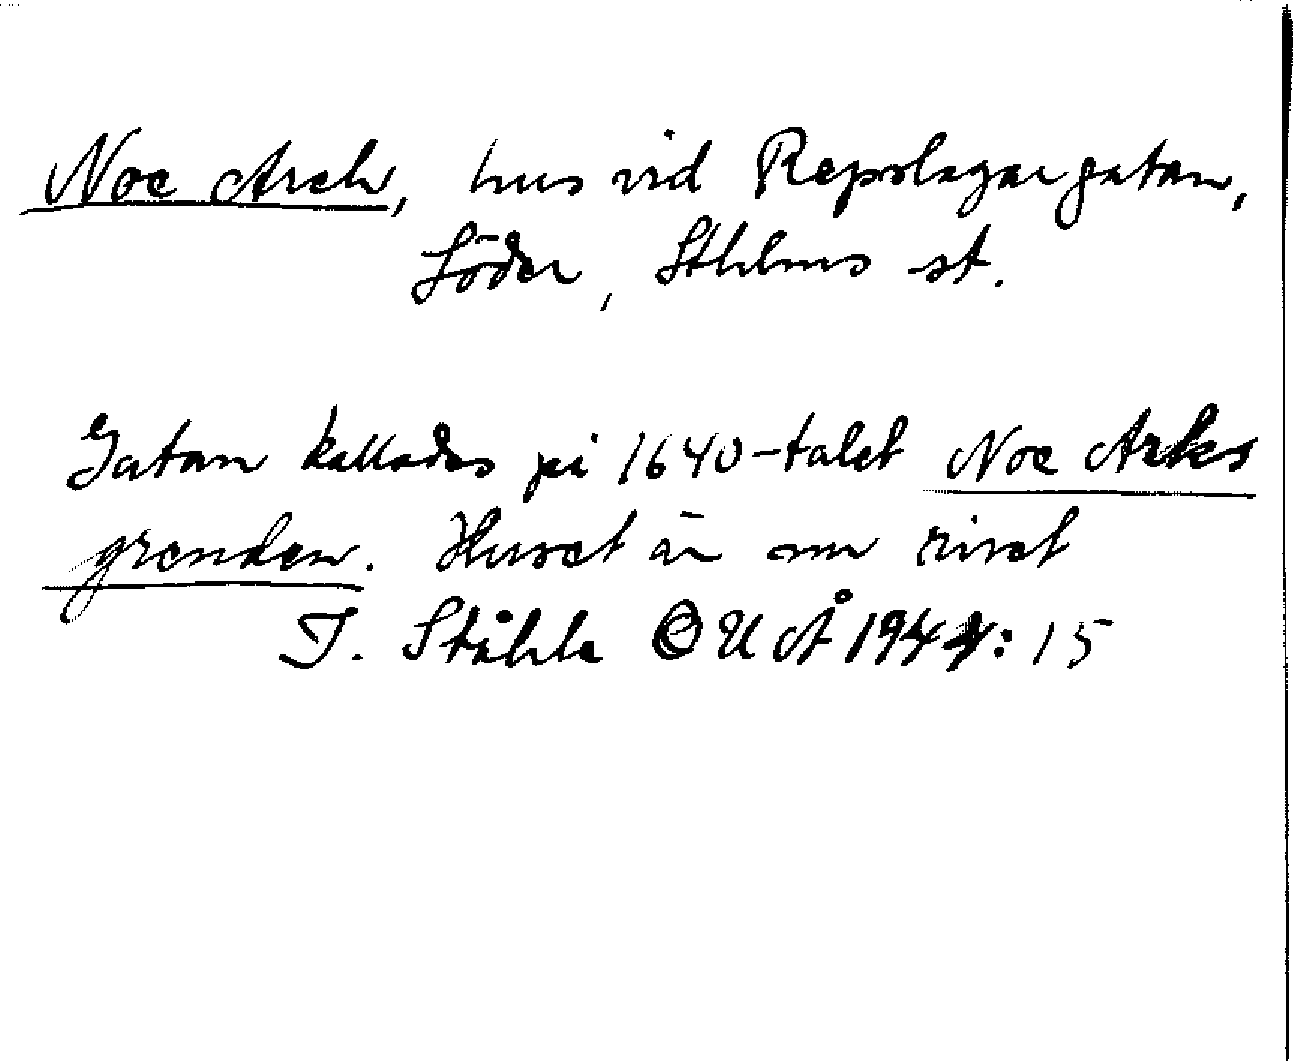 Noe Arch, hus vid Repslagargatan,
Söder, Sthlms st.
Gatan kallades på 1640-talet Noe Arks
grenden. Huset är nu rivet
I. Ståhle OUÅ 1944: 15